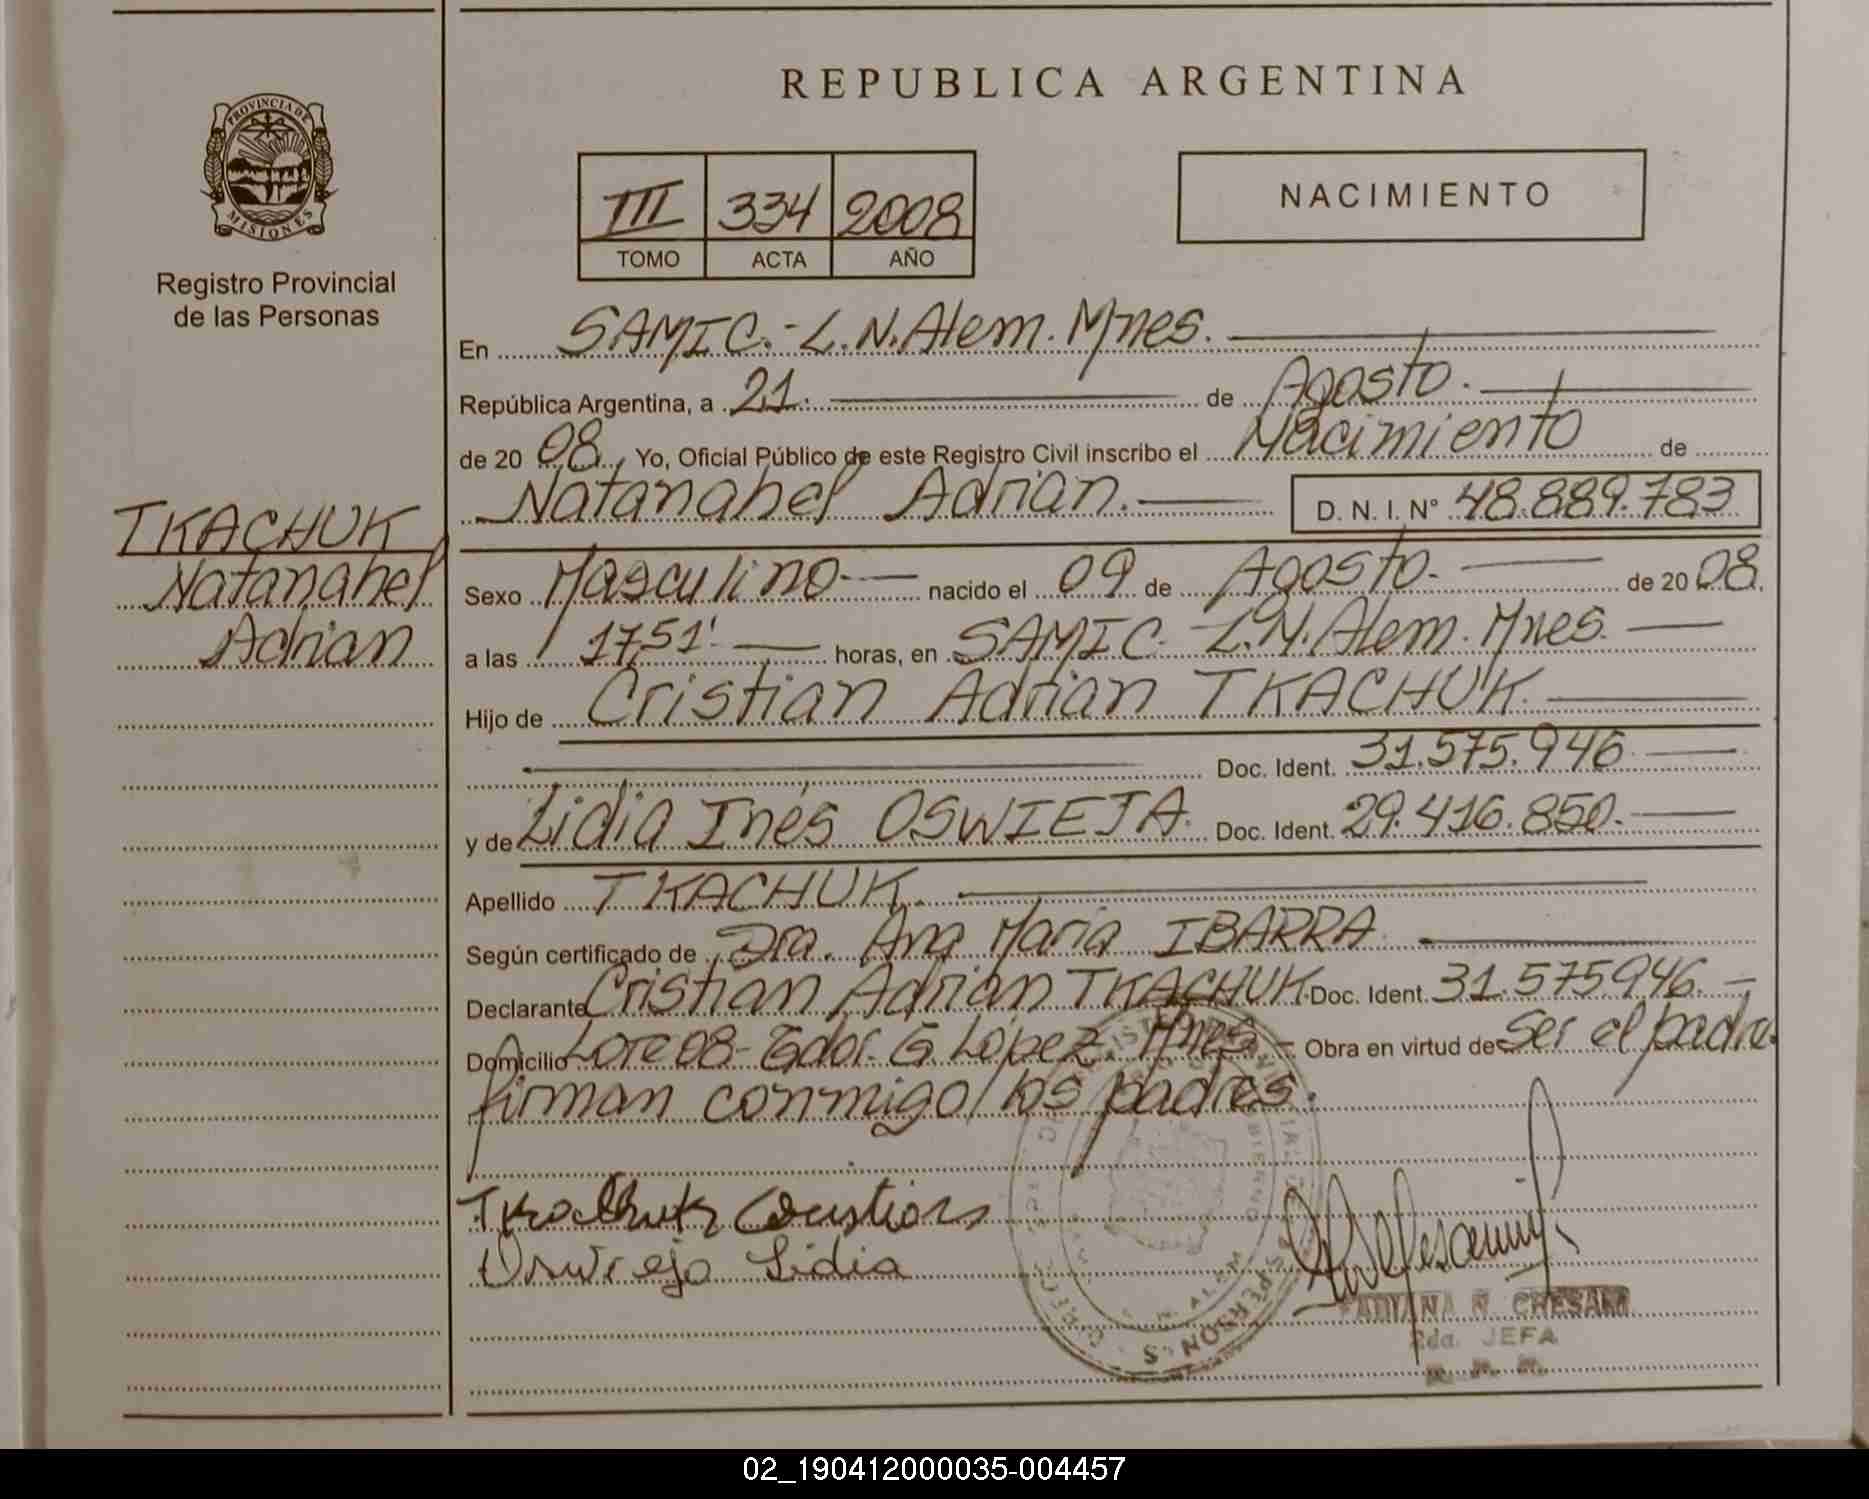 REPUBLICA ARGENTINA
PROVINCIA DE MISIONES
Registro Provincial
de las Personas
III 334 2008
TOMO ACTA AÑO
NACIMIENTO
En SAMIC.-L.N.Alem.Mnes.
República Argentina, a 21. de Agosto.
de 2008. Yo, Oficial Público de este Registro Civil inscribo el Nacimiento de
Natanahel Adrian. D. N. I. Nº 48.889.783
TKACHUK
Natanahel
Adrian
Sexo Masculino- nacido el 09 de Agosto.- de 2008.
a las 17,51' horas, en SAMIC- L.N.Alem.Mnes.
Hijo de Cristian Adrian TKACHUK.
Doc. Ident. 31.575.946
y de Lidia Inés OSWIEJA. Doc. Ident. 29.416.850.
Apellido TKACHUK.
Según certificado de Dra. Ana María IBARRA
Declarante Cristian Adrian TKACHUK. Doc. Ident. 31.575946.-
Domicilio Lote 08- Gdor. G. López. Mnes - Obra en virtud de ser el padre
firman conmigo los padres.
Tkachuk Cristian
Lidia
L. N. ALEM
2da. JEFA
02_190412000035-004457